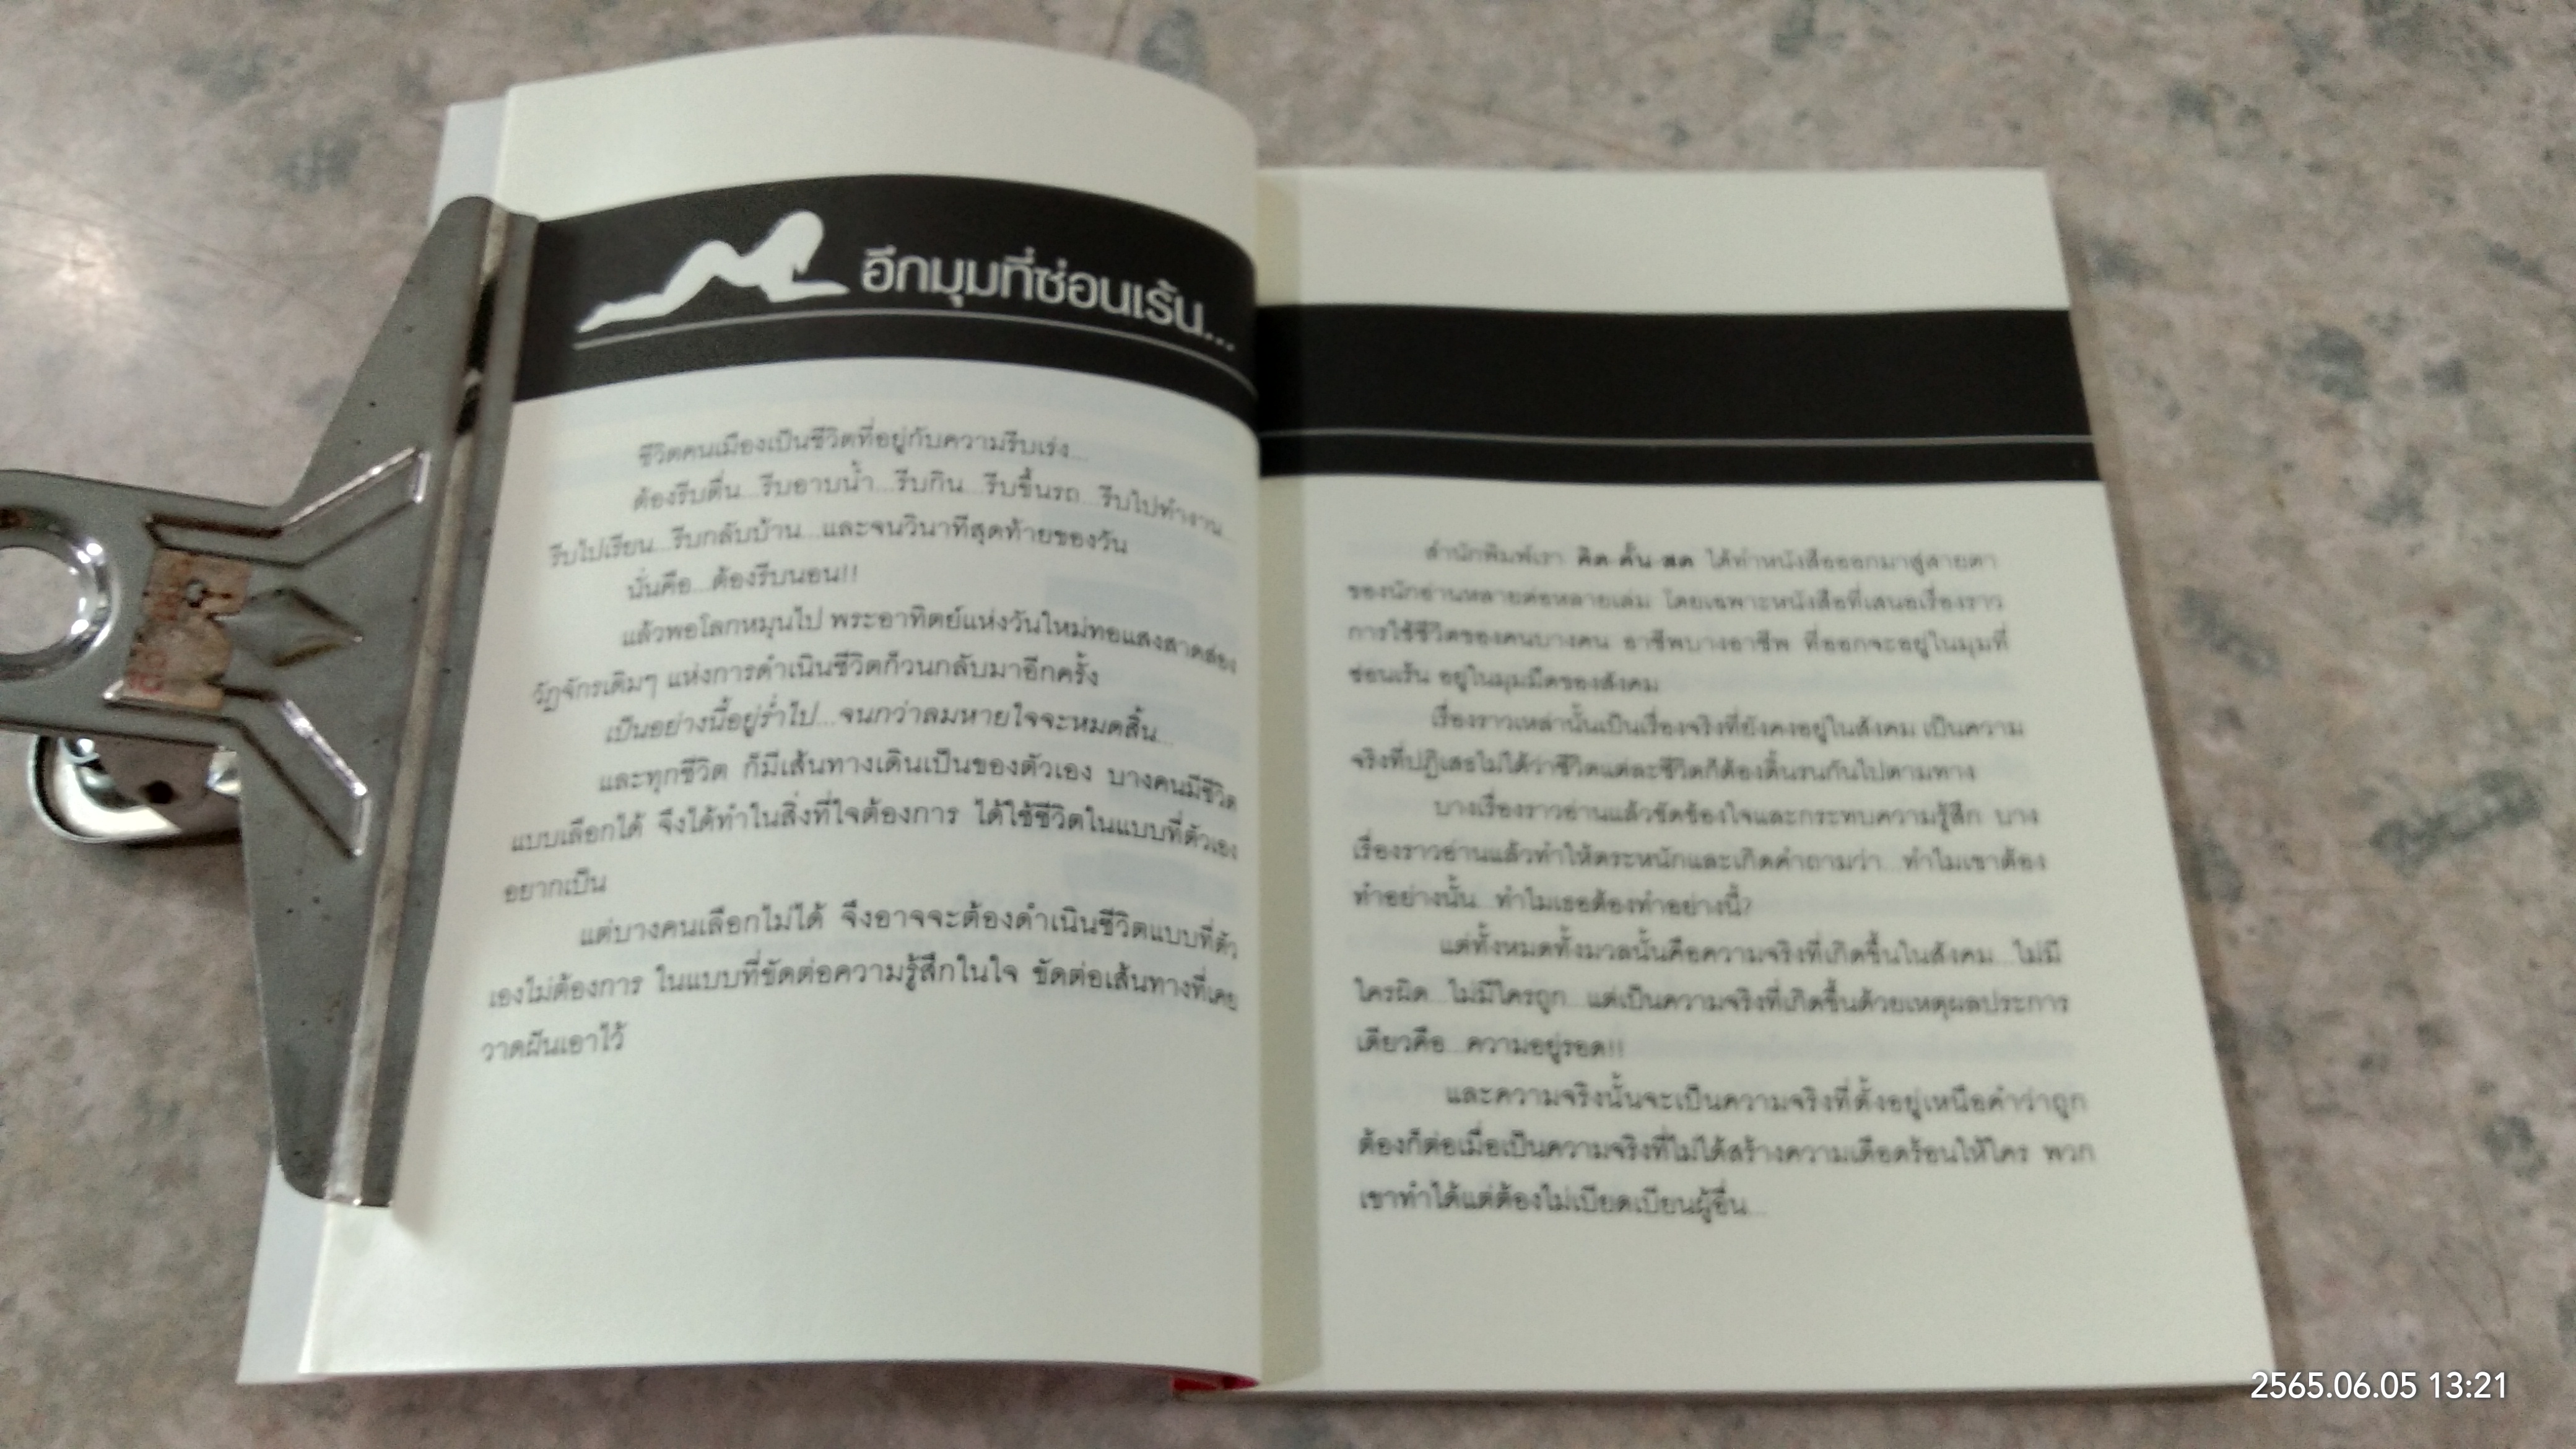 อีกมุมที่ซ่อนเร้น...
ชีวิตคนเมืองเป็นชีวิตที่อยู่กับความรีบเร่ง...
ต้องรีบตื่น...รีบอาบน้ำ...รีบกิน...รีบขึ้นรถ...รีบไปทำงาน...
รีบไปเรียน...รีบกลับบ้าน...และจนวินาทีสุดท้ายของวัน
นั่นคือ...ต้องรีบนอน!!
แล้วพอโลกหมุนไป พระอาทิตย์แห่งวันใหม่ทอแสงสาดส่อง
วัฏจักรเดิมๆ แห่งการดำเนินชีวิตก็วนกลับมาอีกครั้ง
เป็นอย่างนี้อยู่ร่ำไป...จนกว่าลมหายใจจะหมดสิ้น...
และทุกชีวิต ก็มีเส้นทางเดินเป็นของตัวเอง บางคนมีชีวิต
แบบเลือกได้ จึงได้ทำในสิ่งที่ใจต้องการ ได้ใช้ชีวิตในแบบที่ตัวเอง
อยากเป็น
แต่บางคนเลือกไม่ได้ จึงอาจจะต้องดำเนินชีวิตแบบที่ตัว
เองไม่ต้องการ ในแบบที่ขัดต่อความรู้สึกในใจ ขัดต่อเส้นทางที่เคย
วาดฝันเอาไว้
สำนักพิมพ์เรา คิด-คั้น-สด ได้ทำหนังสือออกมาสู่สายตา
ของนักอ่านหลายต่อหลายเล่ม โดยเฉพาะหนังสือที่เสนอเรื่องราว
การใช้ชีวิตของคนบางคน อาชีพบางอาชีพ ที่ออกจะอยู่ในมุมที่
ซ่อนเร้น อยู่ในมุมมืดของสังคม
เรื่องราวเหล่านั้นเป็นเรื่องจริงที่ยังคงอยู่ในสังคม เป็นความ
จริงที่ปฏิเสธไม่ได้ว่าชีวิตแต่ละชีวิตก็ต้องดิ้นรนกันไปตามทาง
บางเรื่องราวอ่านแล้วขัดข้องใจและกระทบความรู้สึก บาง
เรื่องราวอ่านแล้วทำให้ตระหนักและเกิดคำถามว่า...ทำไมเขาต้อง
ทำอย่างนั้น...ทำไมเธอต้องทำอย่างนี้?
แต่ทั้งหมดทั้งมวลนั้นคือความจริงที่เกิดขึ้นในสังคม...ไม่มี
ใครผิด...ไม่มีใครถูก...แต่เป็นความจริงที่เกิดขึ้นด้วยเหตุผลประการ
เดียวคือ...ความอยู่รอด!!
และความจริงนั้นจะเป็นความจริงที่ตั้งอยู่เหนือคำว่าถูก
ต้องก็ต่อเมื่อเป็นความจริงที่ไม่ได้สร้างความเดือดร้อนให้ใคร พวก
เขาทำได้แต่ต้องไม่เบียดเบียนผู้อื่น...
2565.06.05 13:21